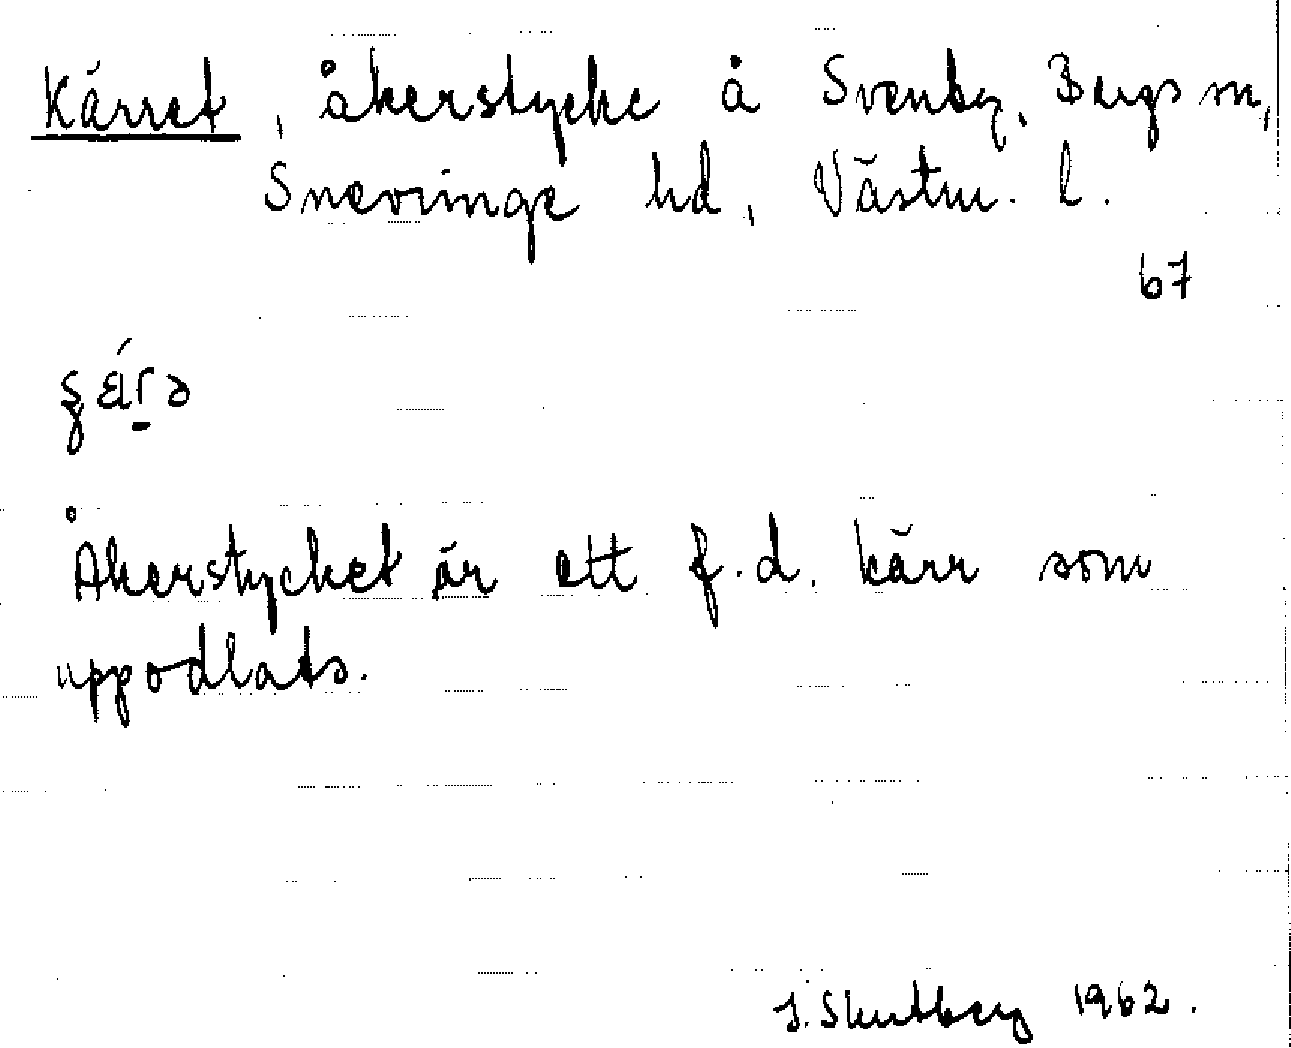 Kärret, åkerstycke å Svenby, Bergs sn,
Snevringe hd, Västm. l.
67
Åkerstycket är ett f.d. kärr som
uppodlats.
1962.